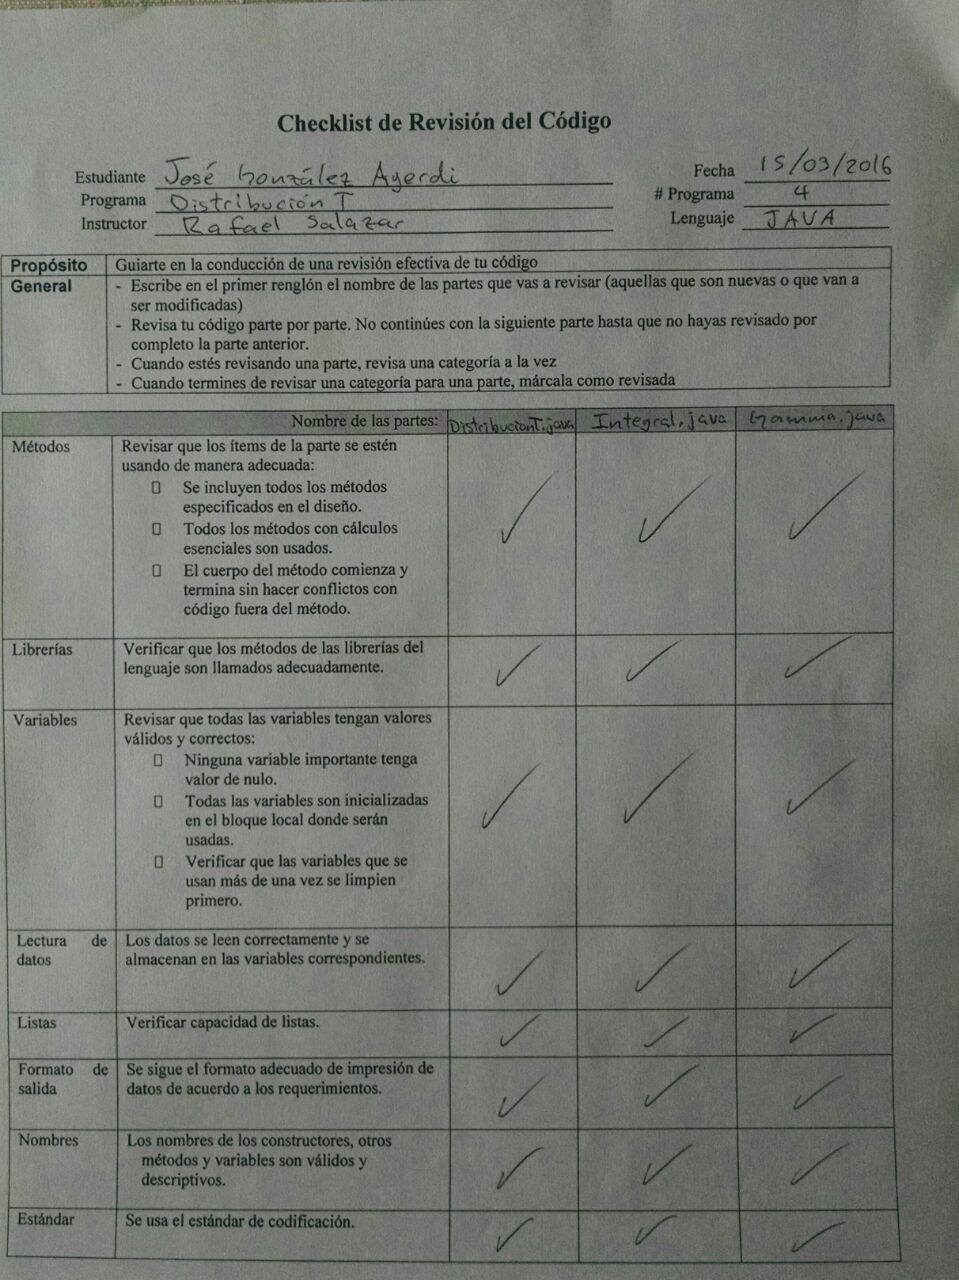 Checklist de Revisión del Código
Estudiante José González Ayerdi Fecha 15/03/2016
Programa Distribución T # Programa 4
Instructor Rafael Salazar Lenguaje JAVA
Propósito Guiarte en la conducción de una revisión efectiva de tu código
General - Escribe en el primer renglón el nombre de las partes que vas a revisar (aquellas que son nuevas o que van a
ser modificadas)
- Revisa tu código parte por parte. No continúes con la siguiente parte hasta que no hayas revisado por
completo la parte anterior.
- Cuando estés revisando una parte, revisa una categoría a la vez
- Cuando termines de revisar una categoría para una parte, márcala como revisada
Nombre de las partes: DistribucionT.java Integral.java Gamma.java
Métodos Revisar que los ítems de la parte se estén
usando de manera adecuada:
Se incluyen todos los métodos
especificados en el diseño.
Todos los métodos con cálculos
esenciales son usados.
El cuerpo del método comienza y
termina sin hacer conflictos con
código fuera del método.
Librerías Verificar que los métodos de las librerías del
lenguaje son llamados adecuadamente.
Variables Revisar que todas las variables tengan valores
válidos y correctos:
Ninguna variable importante tenga
valor de nulo.
Todas las variables son inicializadas
en el bloque local donde serán
usadas.
Verificar que las variables que se
usan más de una vez se limpien
primero.
Lectura de Los datos se leen correctamente y se
datos almacenan en las variables correspondientes.
Listas Verificar capacidad de listas.
Formato de Se sigue el formato adecuado de impresión de
salida datos de acuerdo a los requerimientos.
Nombres Los nombres de los constructores, otros
métodos y variables son válidos y
descriptivos.
Estándar Se usa el estándar de codificación.